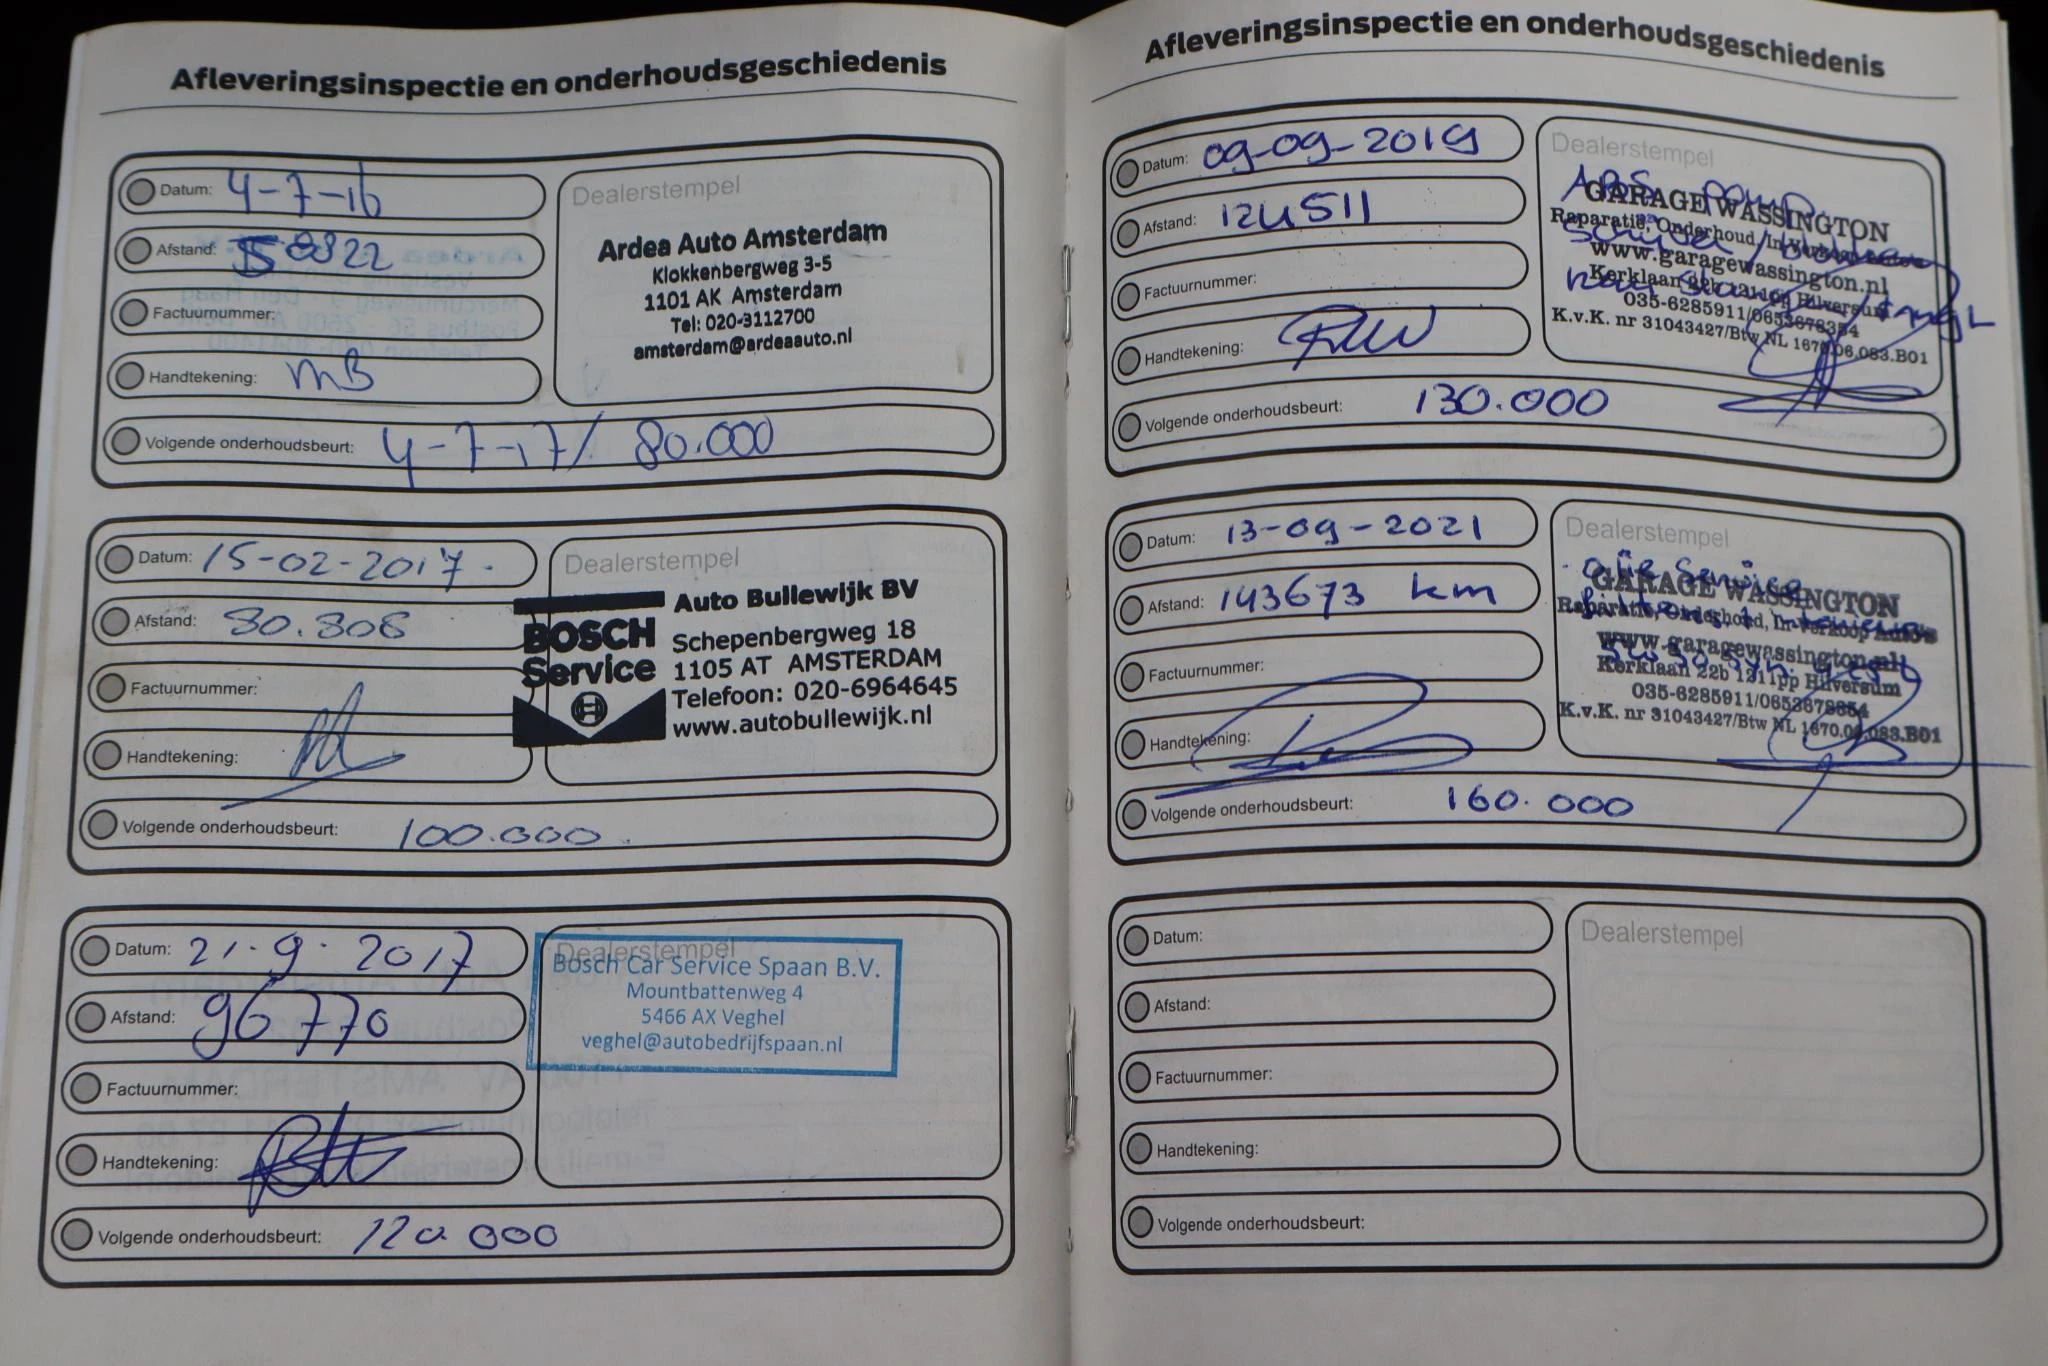 Afleveringsinspectie en onderhoudsgeschiedenis
Datum: 4-7-16
Afstand: 58822
Factuurnummer:
Handtekening: MB
Volgende onderhoudsbeurt: 4-7-17/ 80.000
Dealerstempel
Ardea Auto Amsterdam
Klokkenbergweg 3-5
1101 AK Amsterdam
Tel: 020-3112700
amsterdam@ardeaauto.nl
Datum: 15-02-2017.
Afstand: 80.808
Factuurnummer:
Handtekening:
Volgende onderhoudsbeurt: 100.000.
Dealerstempel
BOSCH
Service
Auto Bullewijk BV
Schepenbergweg 18
1105 AT AMSTERDAM
Telefoon: 020-6964645
www.autobullewijk.nl
Datum: 21.9.2017
Afstand: 96770
Factuurnummer:
Handtekening:
Volgende onderhoudsbeurt: 120.000
Dealerstempel
Bosch Car Service Spaan B.V.
Mountbattenweg 4
5466 AX Veghel
veghel@autobedrijfspaan.nl
Afleveringsinspectie en onderhoudsgeschiedenis
Datum: 09-09-2019
Afstand: 124511
Factuurnummer:
Handtekening:
Volgende onderhoudsbeurt: 130.000
Dealerstempel
ABS pomp
GARAGE WASSINGTON
Raparatie, Onderhoud, In-Verkoop Auto's
www.garagewassington.nl
Kerklaan 22b 1211pp Hilversum
035-6285911/0653678354
K.v.K. nr 31043427/Btw NL 1670.06.083.B01
Datum: 13-09-2021
Afstand: 143673 km
Factuurnummer:
Handtekening:
Volgende onderhoudsbeurt: 160.000
Dealerstempel
olie Service
GARAGE WASSINGTON
Raparatie, Onderhoud, In-Verkoop Auto's
www.garagewassington.nl
Kerklaan 22b 1211pp Hilversum
035-6285911/0653678354
K.v.K. nr 31043427/Btw NL 1670.06.083.B01
Datum:
Afstand:
Factuurnummer:
Handtekening:
Volgende onderhoudsbeurt:
Dealerstempel